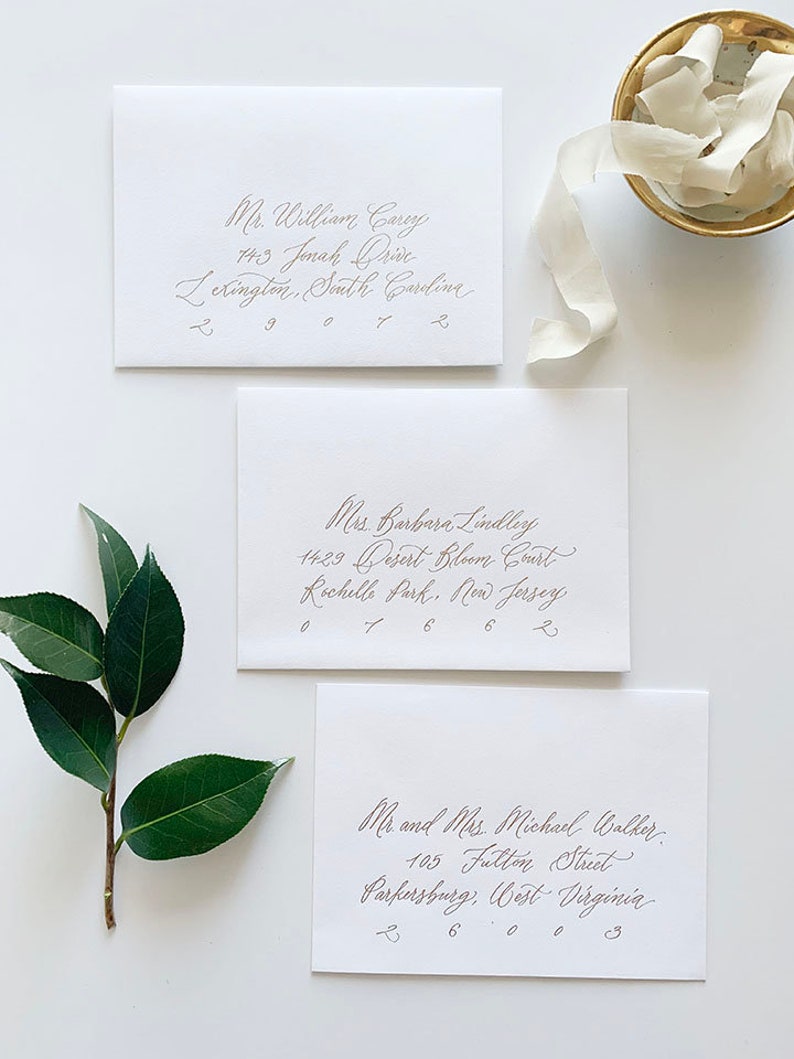 Mr. William Carey
743 Jonah Drive
Lexington, South Carolina
2 9 0 7 2
Mrs. Barbara Lindley
1429 Desert Bloom Court
Rochelle Park, New Jersey
0 7 6 6 2
Mr. and Mrs. Michael Walker
105 Fulton Street
Parkersburg, West Virginia
2 6 0 0 3